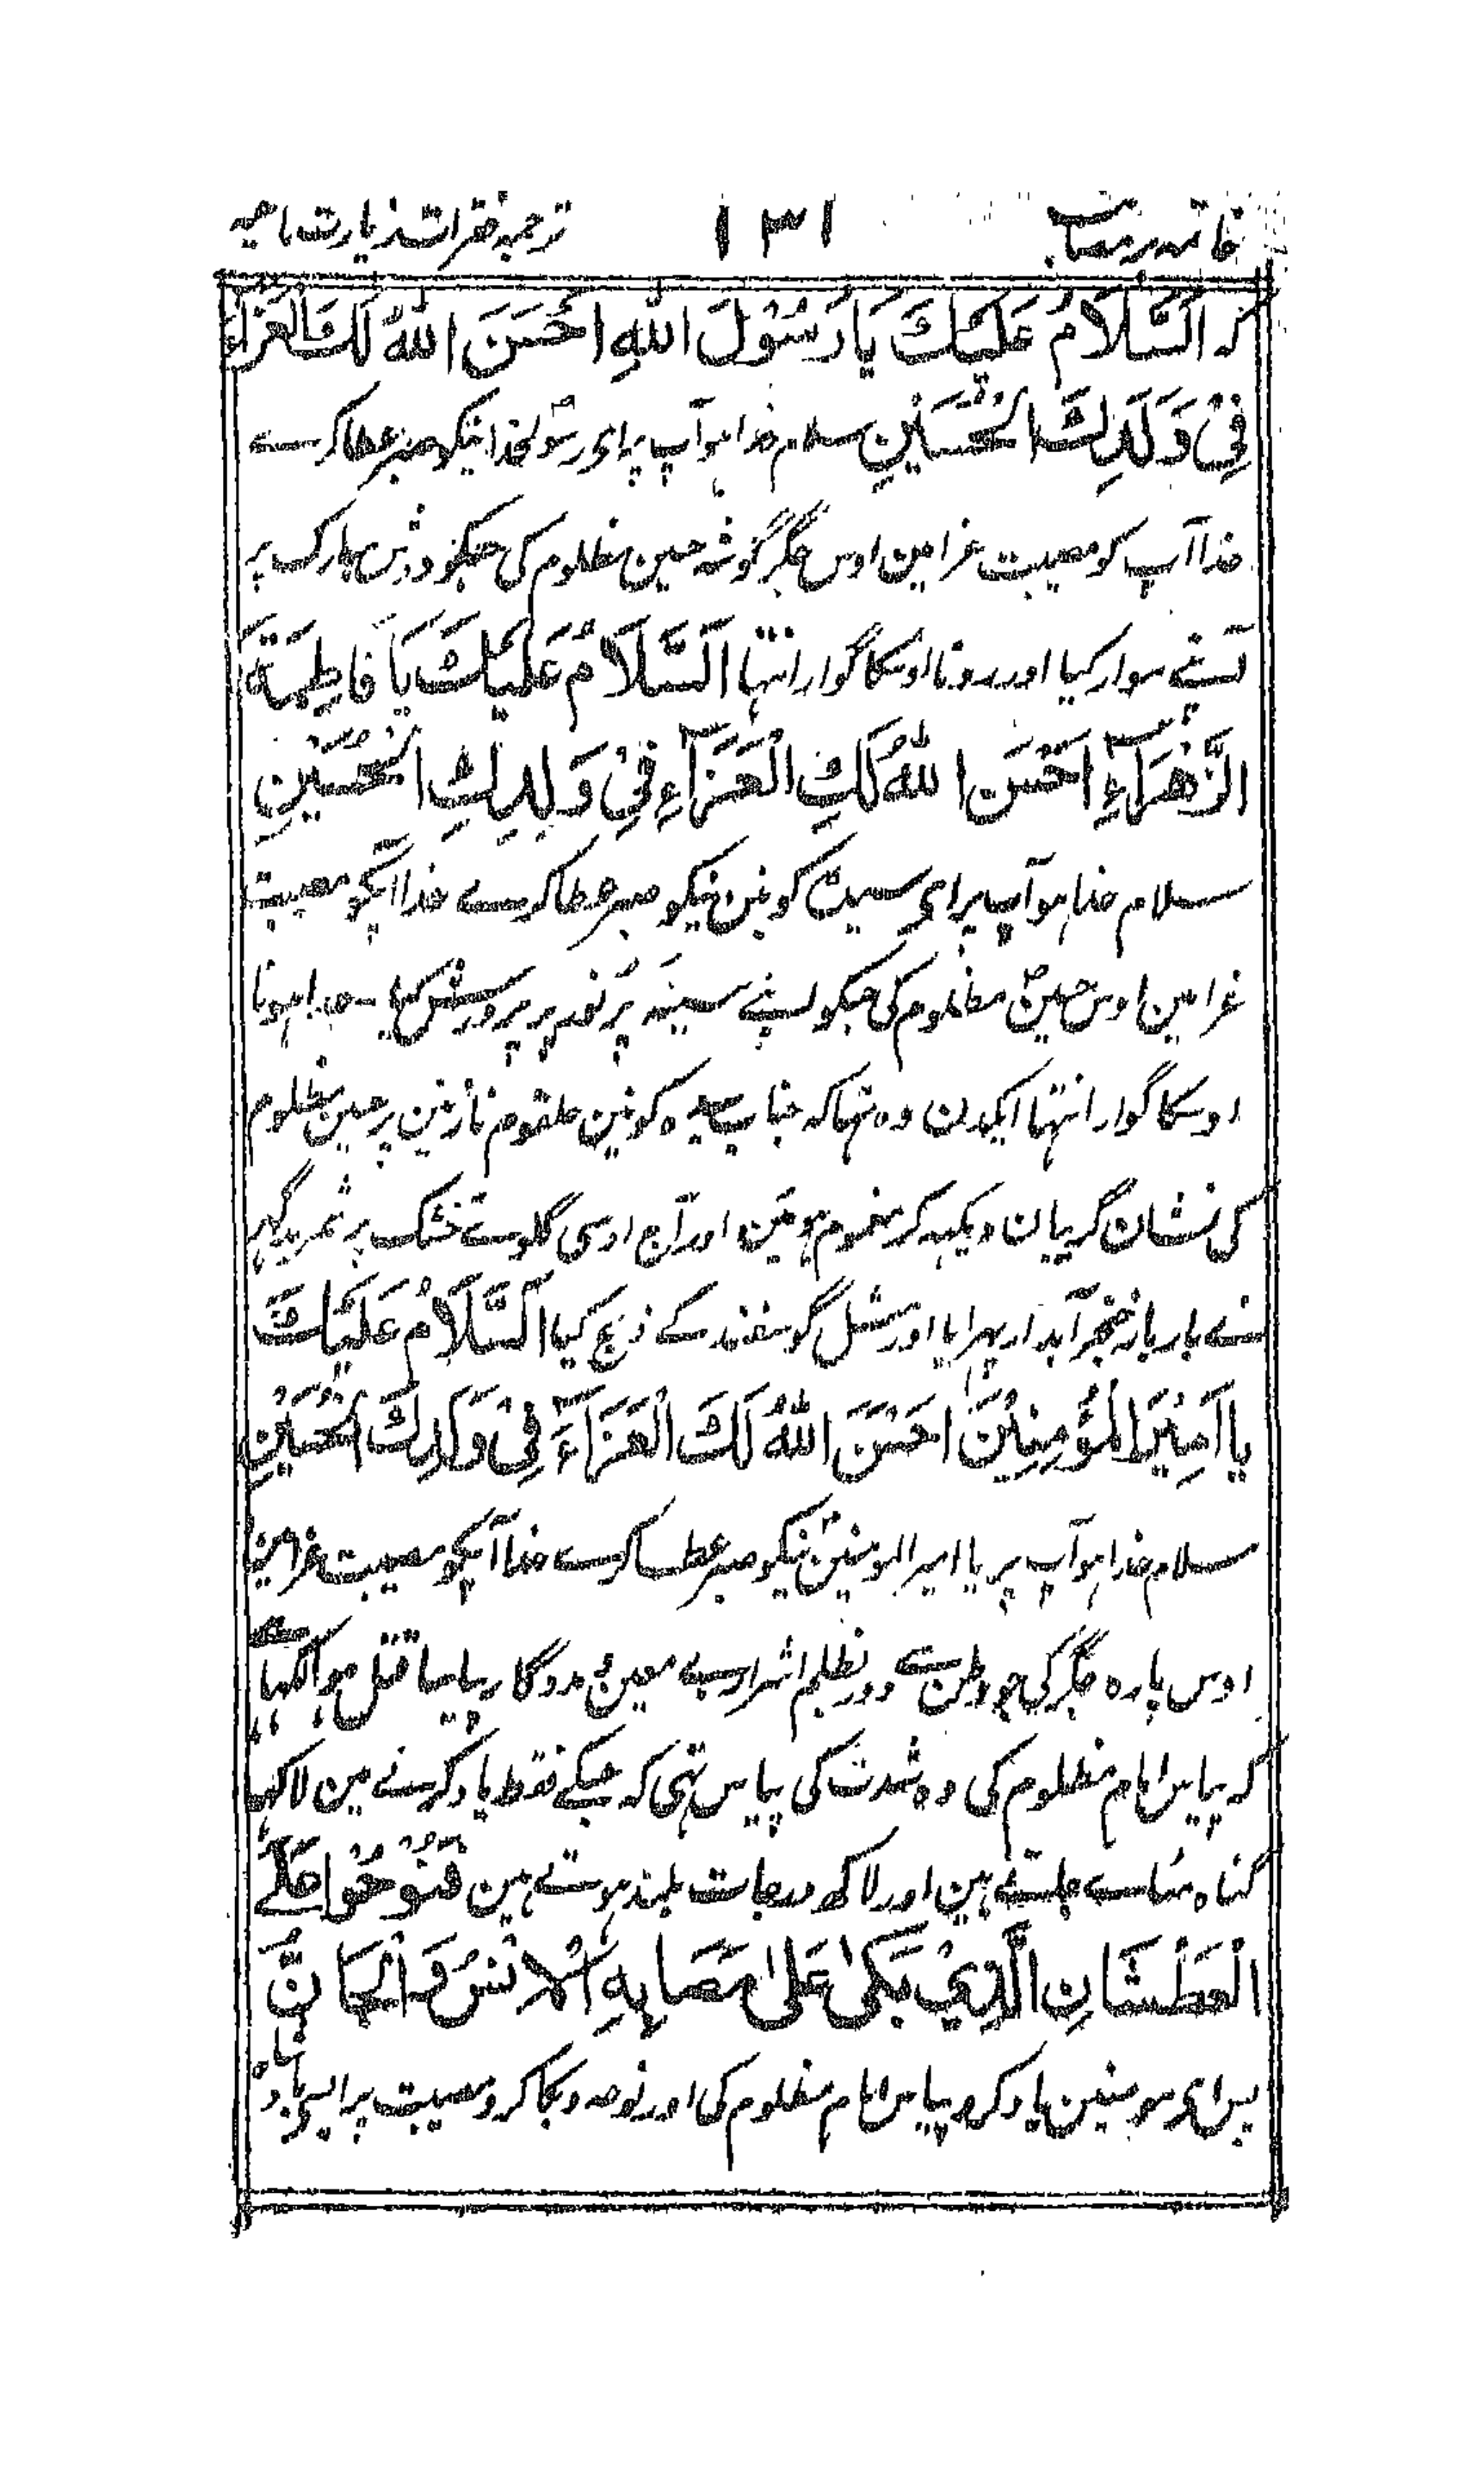 خاتمہ در مصائب ۱۳۱ ترجمہ فقرات زیارت ناحیہ
کہ اَلسَّلَامُ عَلَيْكَ يَا رَسُوْلَ اللهِ اَحْسَنَ اللهُ لَكَ الْعَزَاءَ
فِيْ وَلَدِكَ الْحُسَيْنِ سلام خدا ہو آپ پر ای رسولخدا نیکو صبر عطا کرے
خدا آپ کو مصیبت عزا مین اوس جگر گوشہ حسین مظلوم کی جسکو دوش مبارک پر
آپنے سوار کیا اور رونا اوسکا گوارا نتہا اَلسَّلَامُ عَلَيْكِ يَا فَاطِمَةُ
الزَّهْرَآءِ اَحْسَنَ اللهُ لَكِ الْعَزَآءِ فِيْ وَلَدِكِ الْحُسَيْنِ
سلام خدا ہو آپ پر ای سیدہ کونین نیکو صبر عطا کرے خدا آپکو مصیبت
عزا مین اوس حسین مظلوم کی جسکو اپنے سینہ پر نور پر پرورش کیا جدا ہونا
اوسکا گوارا نتہا ایکدن وہ تہا کہ جناب سیدہ کونین حلقوم نازنین پر حسین مظلوم
کی نشان گریبان دیکہہ کر مغموم ہوئین اور آج اوسی گلوے خشک پر شمر بدگہر
نے بار بار خنجر آبدار پہرایا اور مثل گوسفند کے ذبح کیا اَلسَّلَامُ عَلَيْكَ
يَا اَمِيْرَ الْمُؤْمِنِيْنَ اَحْسَنَ اللهُ لَكَ الْعَزَآءَ فِيْ وَلَدِكَ الْحُسَيْنِ
سلام خدا ہو آپ پر یا امیر المومنین نیکو صبر عطا کرے خدا آپکو مصیبت عزا مین
اوس پارہ جگر کی جو وطن سے دور بظلم اشرار بے معین و مددگار پیاسا قتل ہوا لکہا ہے
کہ پیاس امام مظلوم کی وہ شدت کی پیاس تہی کہ جسکے فقط یاد کرنے مین لاکہہا
گناہ مٹائے جاتے ہین اور لاکھ درجات بلند ہوتے ہین فَنُوْحُوْا عَلَى
الْعَطْشَانِ الَّذِيْ بَكٰى عَلٰى مَصَابِهِ الْاِنْسُ وَ الْجَانُّ
پس ای مومنین یاد کرو پیاس امام مظلوم کی اور نوحہ و بکا کرو مصیبت پر ایسی